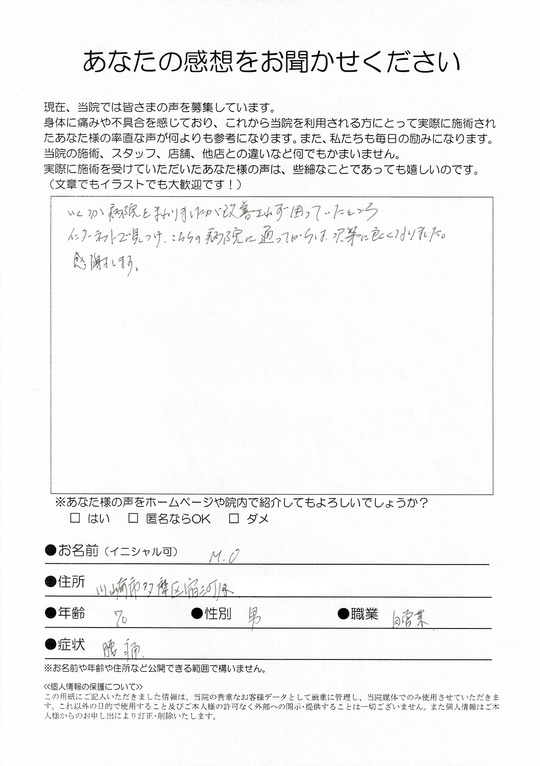 あなたの感想をお聞かせください
現在、当院では皆さまの声を募集しています。
身体に痛みや不具合を感じており、これから当院を利用される方にとって実際に施術され
たあなた様の率直な声が何よりも参考になります。また、私たちも毎日の励みになります。
当院の施術、スタッフ、店舗、他店との違いなど何でもかまいません。
実際に施術を受けていただいたあなた様の声は、些細なことであっても嬉しいのです。
(文章でもイラストでも大歓迎です!)
いくつか病院をまわりましたが改善せず困っていたところ
インターネットで見つけ、こちらの病院に通ってからは、次第に良くなりました。
感謝します。
※あなた様の声をホームページや院内で紹介してもよろしいでしょうか?
□ はい □ 匿名ならOK □ ダメ
●お名前(イニシャル可) M.O
●住所 川崎市多摩区宿河原
●年齢 70 ●性別 男 ●職業 自営業
●症状 腰痛
※お名前や年齢や住所など公開できる範囲で構いません。
≪個人情報の保護について≫
この用紙にご記入いただきました情報は、当院の貴重なお客様データとして厳重に管理し、当院媒体でのみ使用させていただきま
す。これ以外の目的で使用すること及びご本人様の許可なく外部への開示・提供することは一切ございません。また個人情報はご本
人様からのお申し出により訂正・削除いたします。